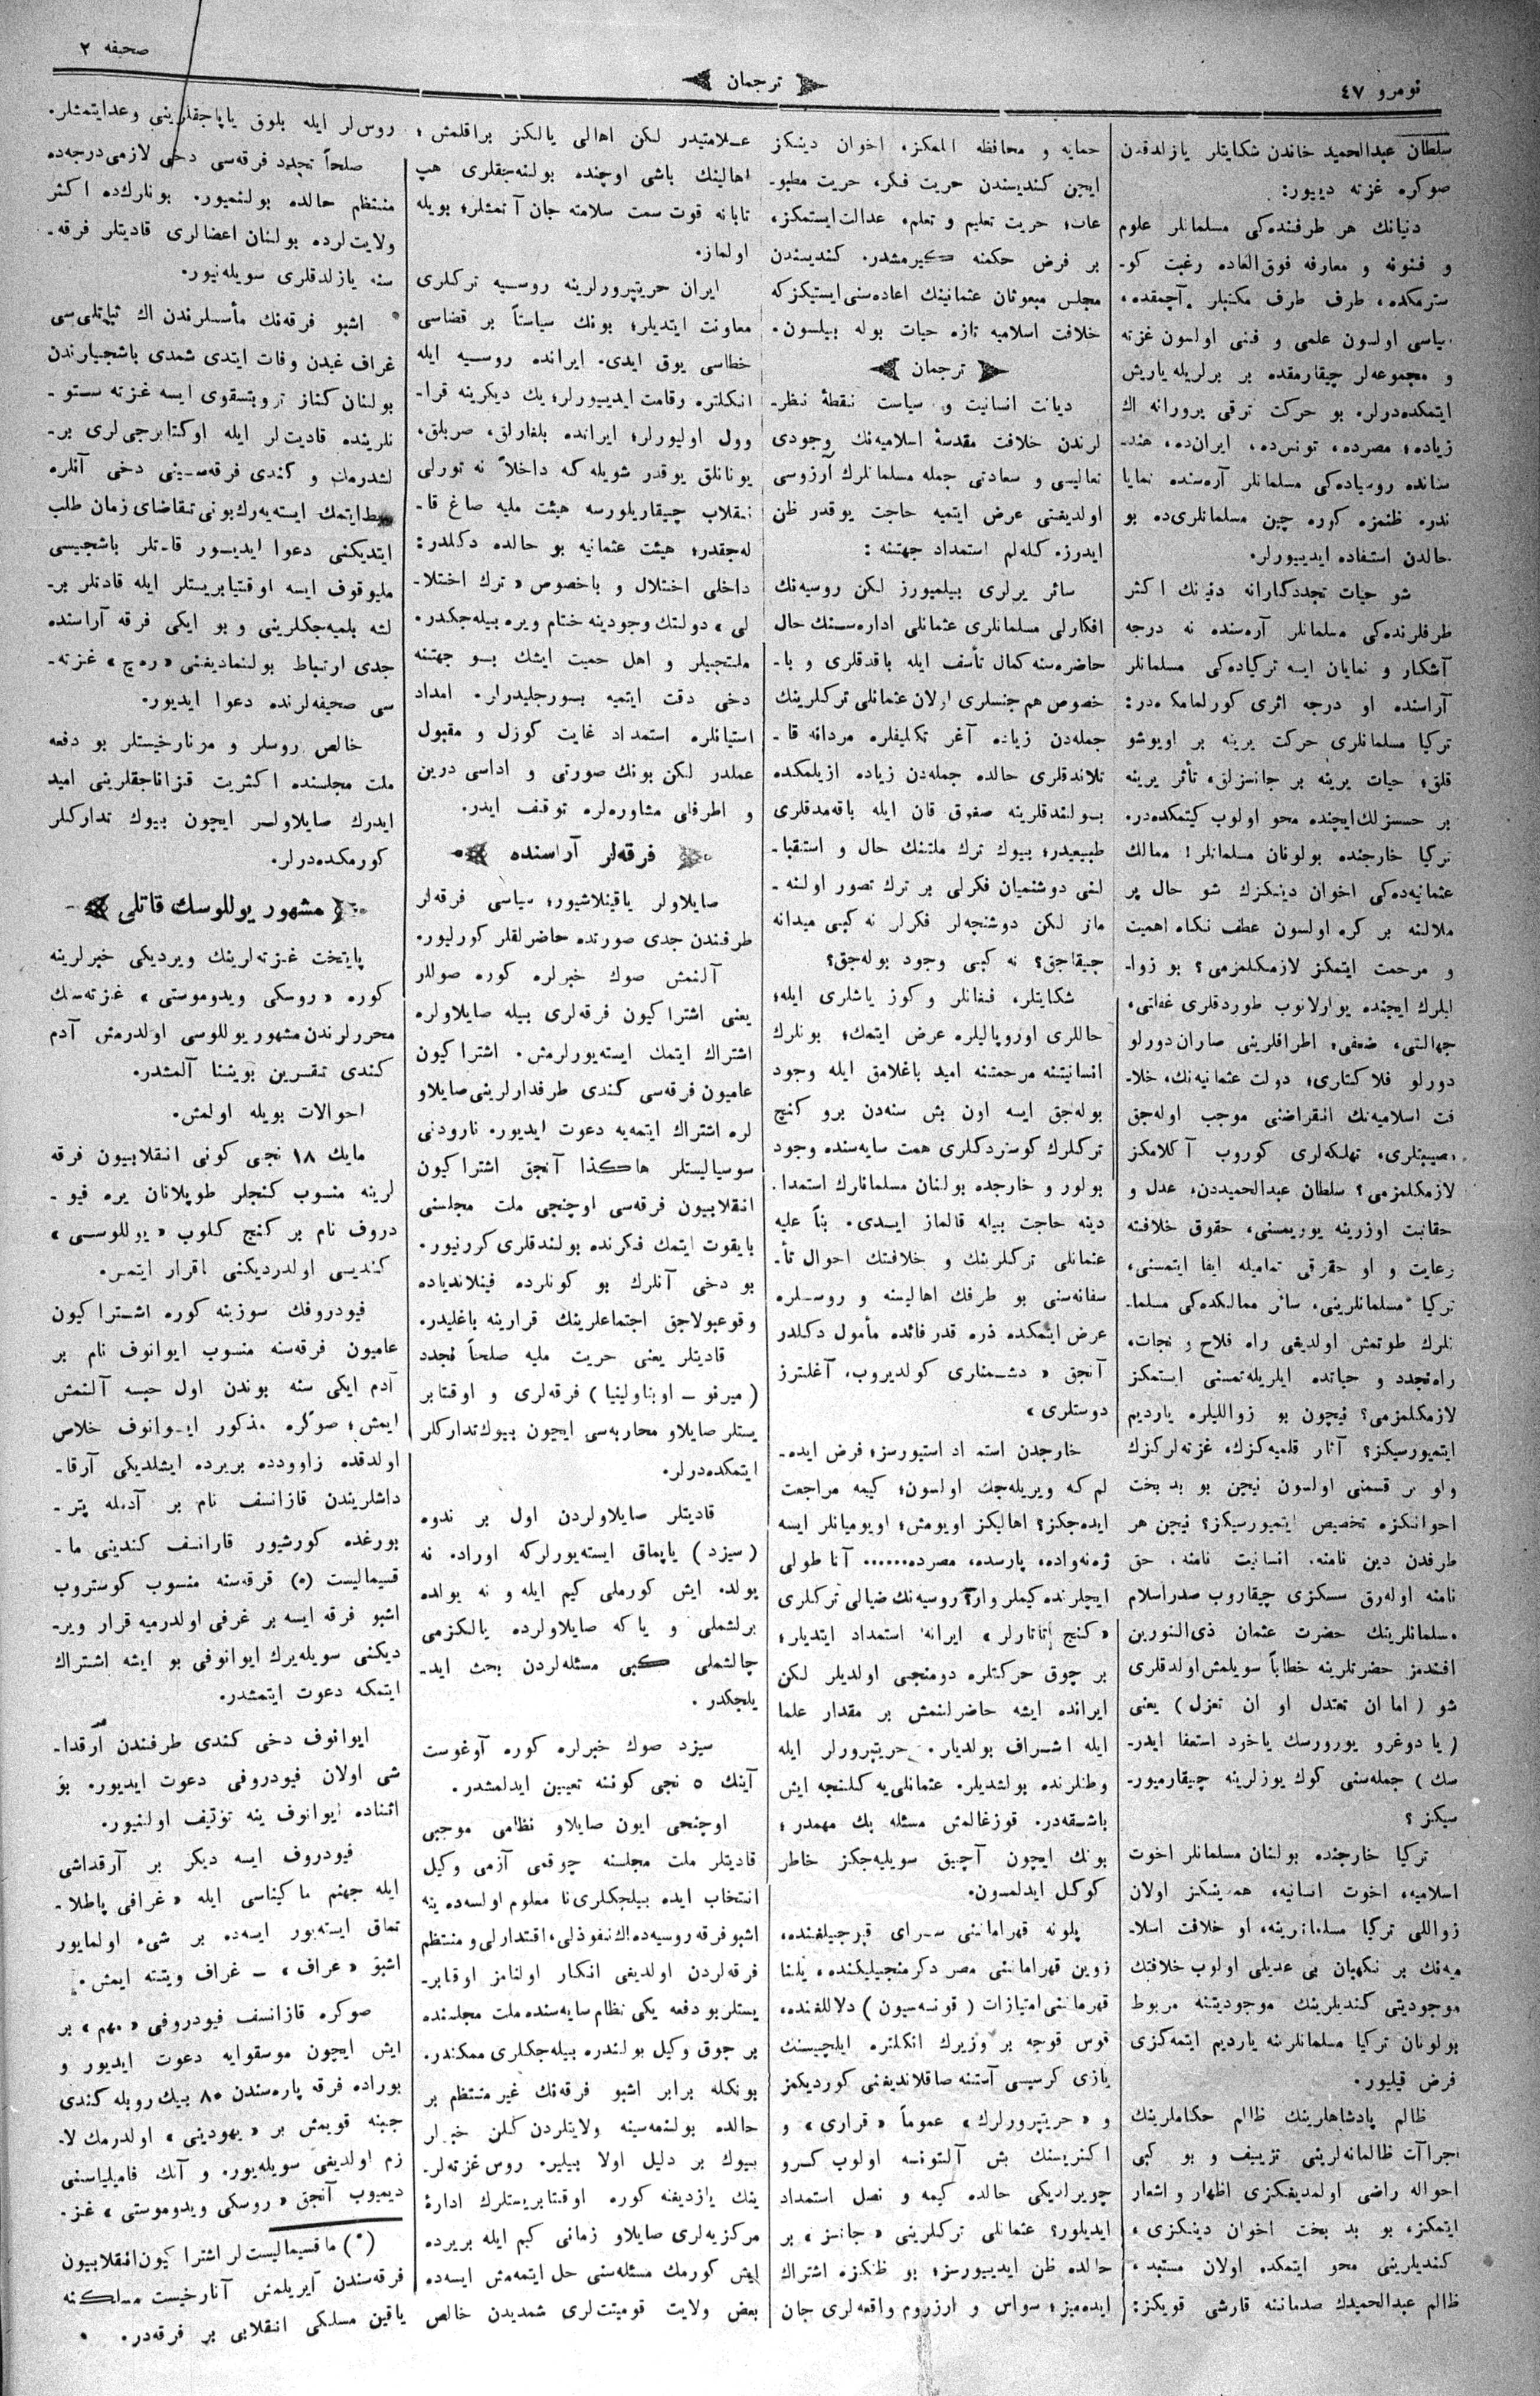 نومرو ٤٧
ترجمان
صحیفه ٢
سلطان عبدالحمید خاندن شکایتلر یازلدقدن
صوکره غزته دییور:
دنیانك هر طرفنده‌کی مسلمانلر علوم
و فنونه و معارفه فوق‌العاده رغبت کو-
سترمکده، طرف طرف مکتبلر آچمقده،
سیاسی اولسون علمی و فنی اولسون غزته
و مجموعه‌لر چیقارمقده بر برلریله یاریش
ایتمکده‌درلر. بو حرکت ترقی پرورانه اك
زیاده؛ مصرده، تونس‌ده، ایران‌ده، هند-
ستانده روسیاده‌کی مسلمانلر آره‌سنده نمایا
ندر. ظنمزه کوره چین مسلمانلری‌ده بو
حالدن استفاده ایدییورلر.
شو حیات تجددکارانه دنیانك اکثر
طرفلرنده‌کی مسلمانلر آره‌سنده نه درجه
آشکار و نمایان ایسه ترکیاده‌کی مسلمانلر
آراسنده او درجه اثری کورلمامکده‌در:
ترکیا مسلمانلری حرکت یرینه بر اویوشو
قلق؛ حیات یرینه بر جانسزلق، تأثر یرینه
بر حسسزلك‌ایچنده محو اولوب کیتمکده‌در.
ترکیا خارجنده بولونان مسلمانلر! ممالك
عثمانیه‌ده‌کی اخوان دینکزك شو حال پر
ملالنه بر کره اولسون عطف نکاه اهمیت
و مرحمت ایتمکز لازمکلمزمی؟ بو زوا-
لیلرك ایچنده یوارلانوب طوردقلری غفلتی،
جهالتی، ضعفی؛ اطرافلرینی صاران دورلو
دورلو فلاکتلری؛ دولت عثمانیه‌نك، خلا-
فت اسلامیه‌نك انقراضنی موجب اوله‌جق
مصیبتلری، تهلکه‌لری کوروب آکلامکز
لازمکلمزمی؟ سلطان عبدالحمیددن، عدل و
حقانیت اوزرینه یوریمسنی، حقوق خلافته
رعایت و او حقوقی تمامیله ایفا ایتمسنی،
ترکیا مسلمانلرینی، سائر ممالکده‌کی مسلما-
نلرك طوتمش اولدیغی راه فلاح و نجات،
راه‌تجدد و حیاتده ایلریله‌تمسنی ایستمکز
لازمکلمزمی؟ نیچون بو زواللیلره یاردیم
ایتمیورسیکز؟ آثار قلمیه‌کزك، غزته‌لرکزك
ولو بر قسمنی اولسون نیچن بو بد بخت
اخوانکزه تخصیص ایتمیورسیکز؟ نیچن هر
طرفدن دین نامنه، انسانیت نامنه، حق
نامنه اوله‌رق سسکزی چیقاروب صدراسلام
مسلمانلرینك حضرت عثمان ذی‌النورین
افندمز حضرتلرینه خطاباً سویلمش‌اولدقلری
شو ( اما ان تعتدل او ان تعزل ) یعنی
( یا دوغرو یورورسك یاخود استعفا ایدر-
سك ) جمله‌سنی کوك یوزلرینه چیقارمیور-
سیکز ؟
ترکیا خارجنده بولنان مسلمانلر اخوت
اسلامیه، اخوت انسانیه، همجنسکز اولان
زواللی ترکیا مسلمانلرینه، او خلافت اسلا-
میه‌نك بر نکهبان بی عدیلی اولوب خلافتك
موجودیتی کندیلرینك موجودیتنه مربوط
بولونان ترکیا مسلمانلرینه یاردیم ایتمه‌کزی
فرض قیلیور.
ظالم پادشاهلرینك ظالم حکاملرینك
اجراآت ظالمانه‌لرینی تزییف و بو کبی
احواله راضی اولمدیغکزی اظهار و اشعار
ایتمکز، بو بد بخت اخوان دینکزی،
کندیلرینی محو ایتمکده اولان مستبد،
ظالم عبدالحمیدك صدماتنه قارشی قویکز:
حمایه و محافظه ایلمکز، اخوان دینکز
ایچن کندیسندن حریت فکر، حریت مطبو-
عات؛ حریت تعلیم و تعلم، عدالت ایستمکز،
بر فرض حکمنه کیرمشدر. کندیسندن
مجلس مبعوثان عثمانینك اعاده‌سنی ایستیکزکه
خلافت اسلامیه تازه حیات بوله بیلسون.
ترجمان
دیانت انسانیت و سیاست نقطهٔ نظر-
لرندن خلافت مقدسهٔ اسلامیه‌نك وجودی
تعالیسی و سعادتی جمله مسلمانلرك آرزوسی
اولدیغنی عرض ایتمیه حاجت یوقدر ظن
ایدرز. کله‌لم استمداد جهتنه :
سائر یرلری بیلمیورز لکن روسیه‌نك
افکارلی مسلمانلری عثمانلی اداره‌سنك حال
حاضره‌سنه کمال تأسف ایله باقدقلری و با-
خصوص هم جنسلری اولان عثمانلی ترکلرینك
جمله‌دن زیاده آغر تکلیفلره مردانه قا-
تلاندقلری حالده جمله‌دن زیاده ازیلمکده
بولندقلرینه صغوق قان ایله باقه‌مدقلری
طبیعیدر؛ بیوك ترك ملتنك حال و استقبا-
لنی دوشنمیان فکرلی بر ترك تصور اولنه-
ماز لکن دوشنجه‌لر فکرلر نه کبی میدانه
چیقاجق؟ نه کبی وجود بوله‌جق؟
شکایتلر، فغانلر و کوز یاشلری ایله؛
حاللری اوروپالیلره عرض ایتمك؛ بونلرك
انسانیتنه مرحمتنه امید باغلامق ایله وجود
بوله‌جق ایسه اون بش سنه‌دن برو کنج
ترکلرك کوستردکلری همت سایه‌سنده وجود
بولور و خارجده بولنان مسلمانلرك استمدا-
دینه حاجت بیله قالماز ایدی. بناً علیه
عثمانلی ترکلرینك و خلافتك احوال تأ-
سفانه‌سنی بو طرفك اهالیسنه و روسلره
عرض ایتمکده ذره قدر فائده مأمول دکلدر
آنجق « دشمنلری کولدیروب، آغلتیرز
دوستلری »
خارجدن استمداد استیورسز؛ فرض ایده-
لم که ویریله‌جك اولسون؛ کیمه مراجعت
ایده‌جکز؟ اهالیکز اویومش؛ اویومیانلر ایسه
ژه‌نه‌واده، پارسده، مصرده...... آناطولی
ایچلرنده کیملر وار؟ روسیه‌نك ضیالی ترکلری
«کنج تاتارلر» ایرانه استمداد ایتدیلر؛
بر چوق حرکتلره دومنجی اولدیلر لکن
ایرانده ایشه حاضرلنمش بر مقدار علما
ایله اشراف بولدیلر. حریتپرورلر ایله
وطنلرنده بولشدیلر. عثمانلی‌یه کلنجه ایش
باشقه‌در. قوزغالمش مسئله پك مهمدر؛
بونك ایچون آچیق سویلیه‌جکز خاطر
کوکل ایدلمسون.
پلونه قهرماننی سرای قپوجیلغنده،
زوین قهرماننی مصر دکرمنجیلیکنده، یلنا
قهرماننی امتیازات ( قونسه‌سیون ) دلاللغنده،
قوس قوجه بر وزیرك انکلتره ایلچیسنك
یازی کرسیسی آستنه صاقلاندیغنی کوردیکمز
و «حریتپرورلرك» عموماً «قراری» و
اکثریسنك بش آلتونسه اولوب کرو
چویرلدیکی حالده کیمه و نصل استمداد
ایدیلور؟ عثمانلی ترکلرینی «جانسز» بر
حالده ظن ایدییورسز؛ بو ظنکزه اشتراك
ایده‌میز؛ سواس و ارزروم واقعه‌لری جان
عـلامتیدر لکن اهالی یالکز براقلمش؛
اهالینك باشی اوچنده بولنه‌جقلری هپ
تابانه قوت سمت سلامته جان آتمشلر؛ بویله
اولماز.
ایران حریتپرورلرینه روسیه ترکلری
معاونت ایتدیلر؛ بونك سیاستاً بر قضاسی
خطاسی یوق ایدی. ایرانده روسیه ایله
انکلتره رقابت ایدییورلر؛ یك دیکرینه قرا-
وول اولیورلر؛ ایرانده بلغارلق، صربلق،
یونانلق یوقدر شویله که داخلاً نه تورلی
انقلاب چیقاریلورسه هیئت ملیه صاغ قا-
له‌جقدر؛ هیئت عثمانیه بو حالده دکلدر:
داخلی اختلال و باخصوص «ترك اختلا-
لی» دولتك وجودینه ختام ویره بیله‌جکدر.
ملتجیلر و اهل حمیت ایشك بو جهتنه
دخی دقت ایتمیه بورجلیدرلر. امداد
استیانلره استمداد غایت کوزل و مقبول
عملدر لکن بونك صورتی و اداسی درین
و اطرافلی مشاوره‌لره توقف ایدر.
فرقه‌لر آراسنده
صایلاولر یاقینلاشیور؛ سیاسی فرقه‌لر
طرفندن جدی صورتده حاضرلقلر کورلیور.
آلنمش صوك خبرلره کوره صوللر
یعنی اشتراکیون فرقه‌لری بیله صایلاولره
اشتراك ایتمك ایسته‌یورلرمش. اشتراکیون
عامیون فرقه‌سی کندی طرفدارلرینی صایلاو
لره اشتراك ایتمه‌یه دعوت ایدیور. نارودنی
سوسیالیستلر هاکذا آنجق اشتراکیون
انقلابیون فرقه‌سی اوچنجی ملت مجلسنی
بایقوت ایتمك فکرنده بولندقلری کورنیور.
بو دخی آنلرك بو کونلرده فینلاندیاده
وقوعبولاجق اجتماعلرینك قرارینه باغلیدر.
قادیتلر یعنی حریت ملیه صلحاً تجدد
( میرنو - اوبناولینیا ) فرقه‌لری و اوقتابر
یستلر صایلاو محاربه‌سی ایچون بیوك تدارکلر
ایتمکده‌درلر.
قادیتلر صایلاولردن اول بر ندوه
(سیزد) یاپماق ایسته‌یورلرکه اوراده نه
یولده ایش کورملی کیم ایله و نه یولده
برلشملی و یاکه صایلاولرده یالکزمی
چالشملی کبی مسئله‌لردن بحث اید-
یلجکدر.
سیزد صوك خبرلره کوره آوغوست
آینك ٥ نجی کوننه تعیین ایدلمشدر.
اوچنجی ایون صایلاو نظامی موجبی
قادیتلر ملت مجلسنه چوقمی آزمی وکیل
انتخاب ایده بیلجکلری نا معلوم اولسه‌ده ینه
اشبو فرقه روسیه‌ده اك نفوذلی، اقتدارلی و منتظم
فرقه‌لردن اولدیغی انکار اولنامز اوقتابر-
یستلر بو دفعه یکی نظام سایه‌سنده ملت مجلسنده
بر چوق وکیل بولندره بیله‌جکلری ممکندر.
بونکله برابر اشبو فرقه‌نك غیر منتظم بر
حالده بولنمه‌سینه ولایتلردن کلن خبرلر
بیوك بر دلیل اولا بیلیر. روس غزته‌لر-
ینك یازدیغنه کوره اوقتابریستلرك ادارهٔ
مرکزیه‌لری صایلاو زمانی کیم ایله بریرده
ایش کورمك مسئله‌سنی حل ایتمه‌مش ایسه‌ده
بعض ولایت قومیتت‌لری شمدیدن خالص
روس‌لر ایله بلوق یاپاجقلرینی وعدایتمشلر.
صلحاً تجدد فرقه‌سی دخی لازمی درجه‌ده
منتظم حالده بولنمیور. بونلرك‌ده اکثر
ولایت‌لرده بولنان اعضالری قادیتلر فرقه-
سنه یازلدقلری سویله‌نیور.
اشبو فرقه‌نك مأسسلرندن اك ثباتلی‌سی
غراف غیدن وفات ایتدی شمدی باشجیلرندن
بولنان کناز تروبتسقوی ایسه غزته ستو-
نلرینده قادیت‌لر ایله اوکتابرجی‌لری بر-
لشدرمك و کندی فرقه‌سینی دخی آنلره
ربط ایتمك ایسته‌یه‌رك بونی تقاضای زمان طلب
ایتدیکنی دعوا ایدیور قادتلر باشجیسی
ملیوقوف ایسه اوقتیابریستلر ایله قادتلر بر-
لشه بلمیه‌جکلرینی و بو ایکی فرقه آراسنده
جدی ارتباط بولنمادیغنی «ره‌چ» غزته-
سی صحیفه‌لرنده دعوا ایدیور.
خالص روسلر و مونارخیستلر بو دفعه
ملت مجلسنده اکثریت قزاناجقلرینی امید
ایدرك صایلاولر ایچون بیوك تدارکلر
کورمکده‌درلر.
مشهور یوللوسك قاتلی
پایتخت غزته‌لرینك ویردیکی خبرلرینه
کوره «روسکی ویدوموستی» غزته‌سنك
محررلرندن مشهور یوللوسی اولدرمش آدم
کندی تقسرین بویننا آلمشدر.
احوالات بویله اولمش.
مایك ١٨ نجی کونی انقلابیون فرقه
لرینه منسوب کنجلر طوپلانان یره فیو-
دروف نام بر کنج کلوب «یوللوسی»
کندیسی اولدردیکنی اقرار ایتمش.
فیودروفك سوزینه کوره اشتراکیون
عامیون فرقه‌سنه منسوب ایوانوف نام بر
آدم ایکی سنه بوندن اول حبسه آلنمش
ایمش؛ صوکره مذکور ایوانوف خلاص
اولدقده زاوودده بریرده ایشلدیکی آرقا-
داشلریندن قازانسف نام بر آدمله پتر-
بورغده کورشیور قازانسف کندینی ما-
قسیمالیست (*) فرقه‌سنه منسوب کوستروب
اشبو فرقه ایسه بر غرفی اولدرمیه قرار ویر-
دیکنی سویله‌یرك ایوانوفی بو ایشه اشتراك
ایتمکه دعوت ایتمشدر.
ایوانوف دخی کندی طرفندن آرقدا-
شی اولان فیودروفی دعوت ایدیور. بو
اثناده ایوانوف ینه توقیف اولنیور.
فیودروف ایسه دیکر بر آرقداشی
ایله جهنم ماکیناسی ایله «غرافی پاطلا-
تماق ایسته‌یور ایسه‌ده بر شیء اولمایور
اشبو «غراف» - غراف ویتته ایمش.
صوکره قازانسف فیودروفی «مهم» بر
ایش ایچون موسقوایه دعوت ایدیور و
بوراده فرقه پاره‌سندن ٨٠ بیك روبله کندی
جبنه قویمش بر «یهودینی» اولدرمك لا-
زم اولدیغی سویله‌یور. و آنك فامیلیاسنی
دیمیوب آنجق «روسکی ویدوموستی» غز-
(*) ماقسیمالیست‌لر اشتراکیون انقلابیون
فرقه‌سندن آیریلمش آنارخیست مسلکنه
یاقین مسلکی انقلابی بر فرقه‌در.